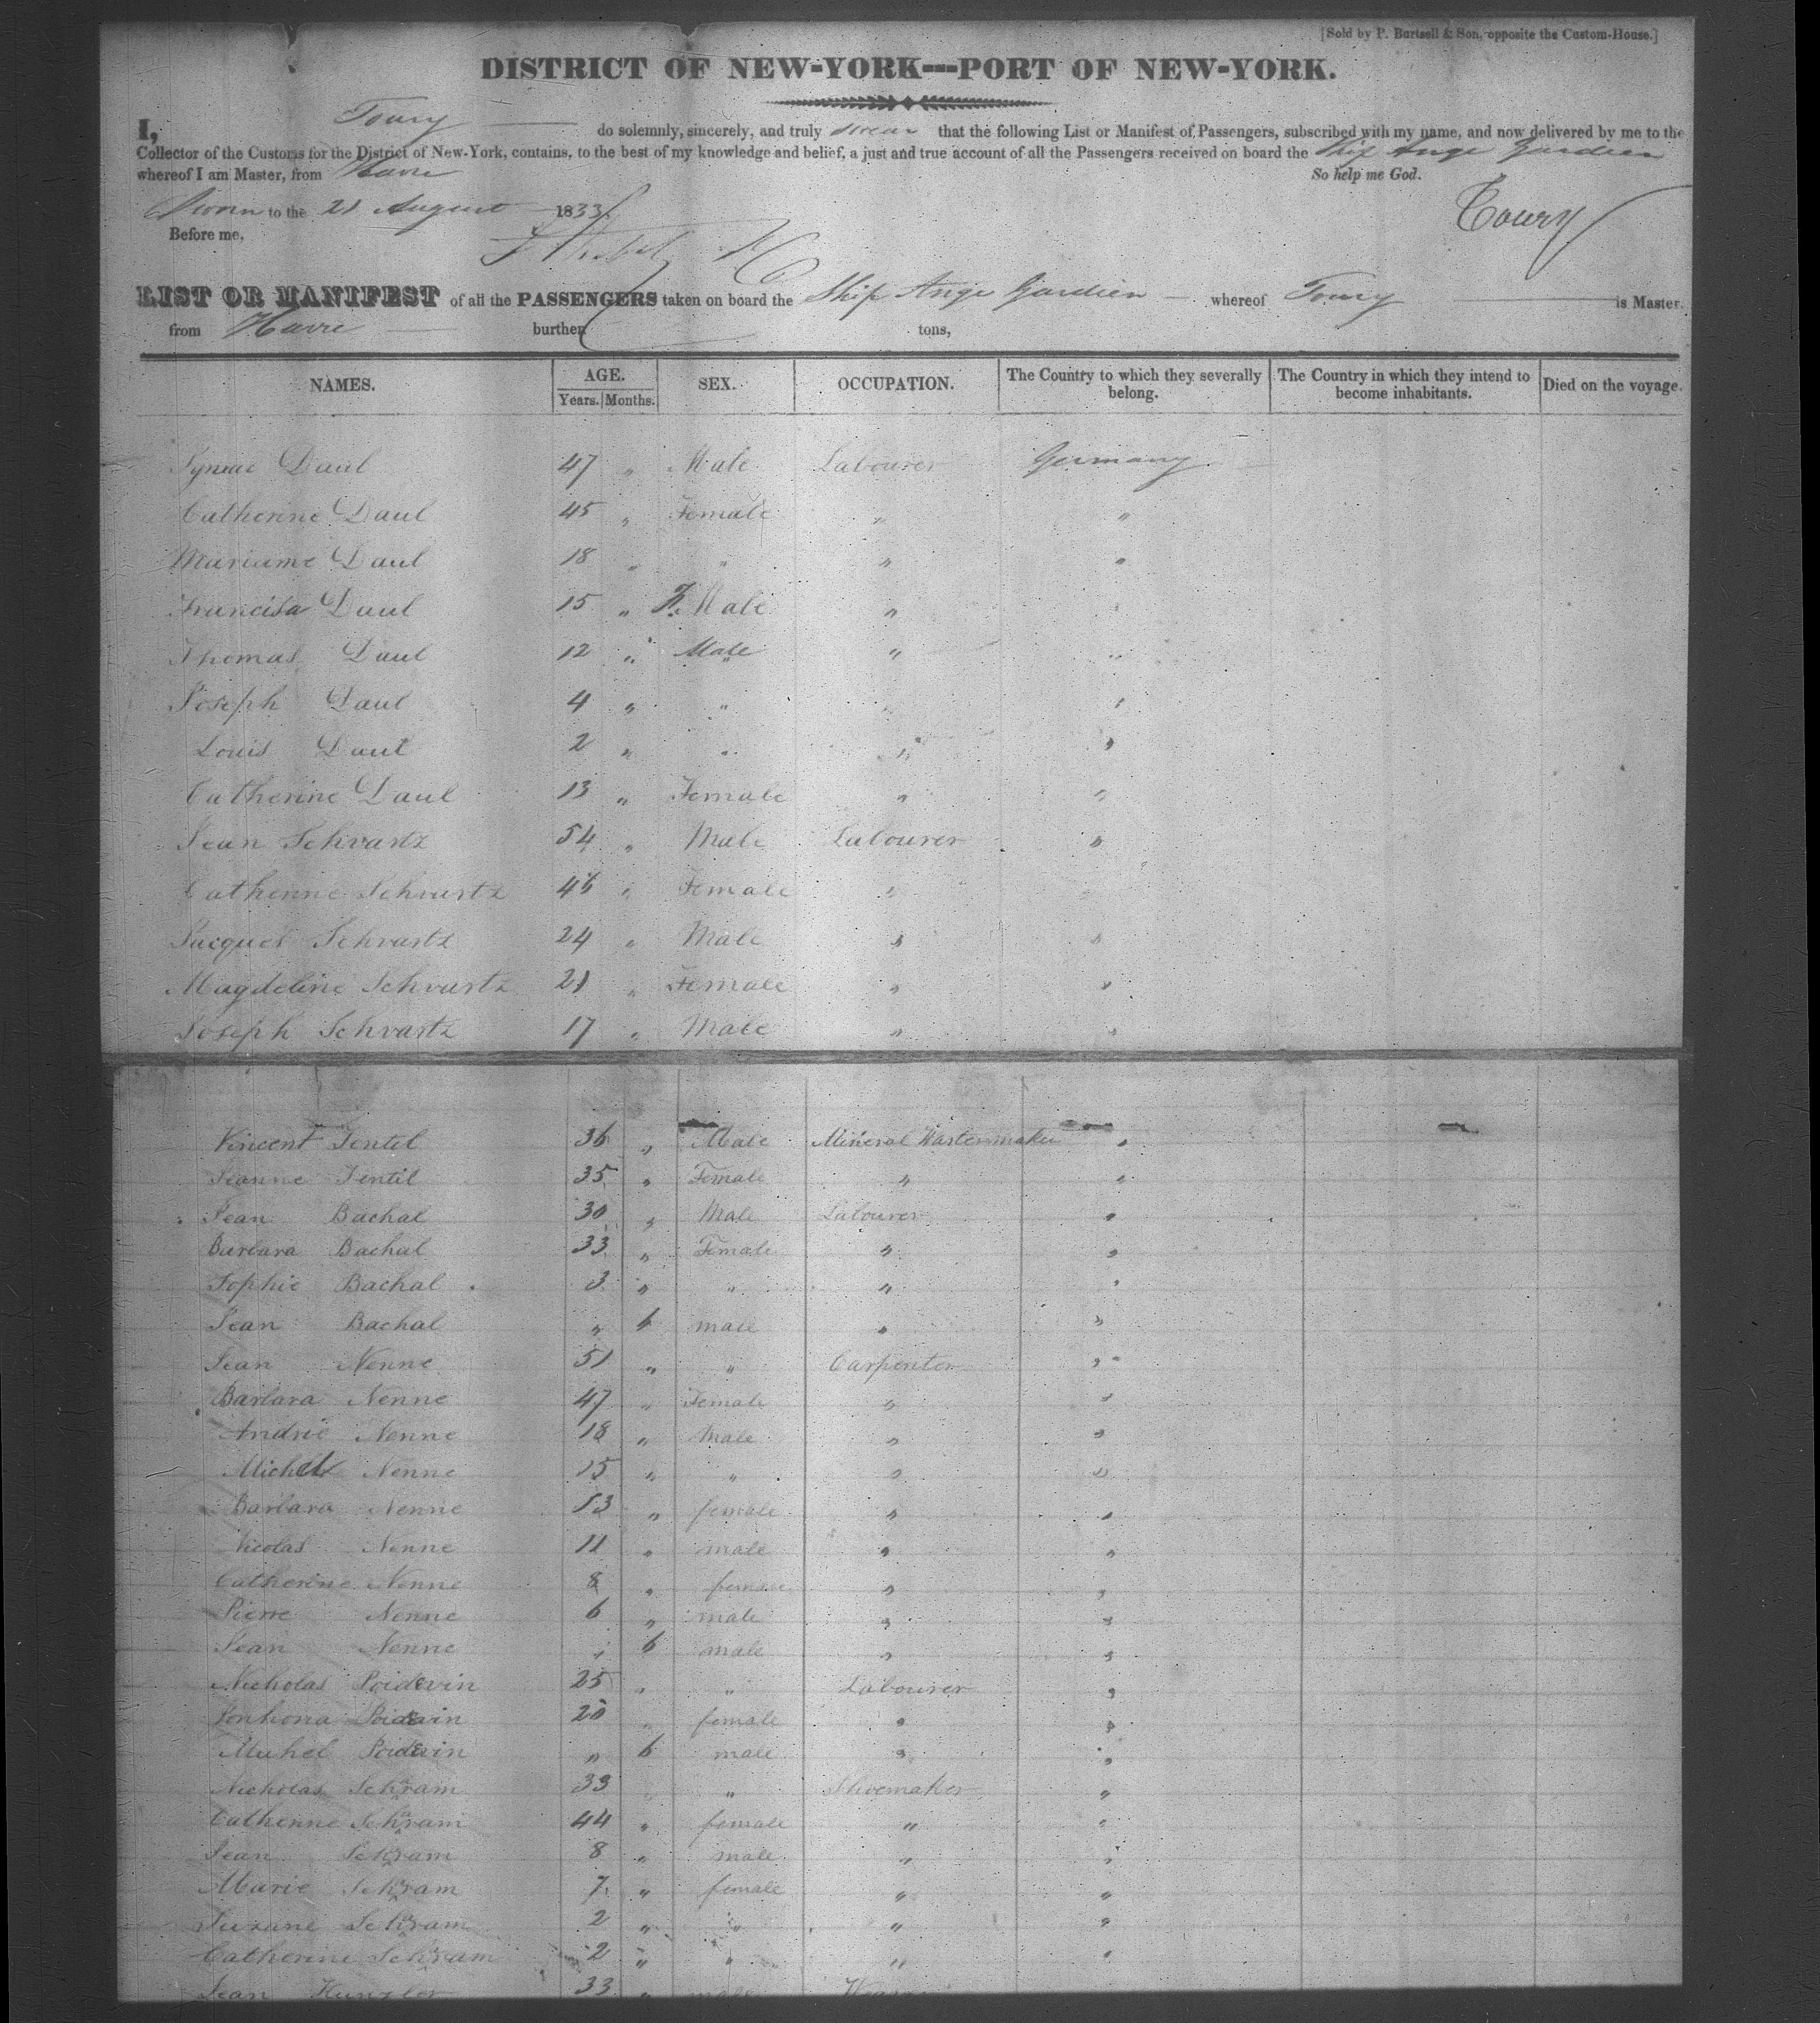 [Sold by P. Burtsell & Son, opposite the Custom-House.]
DISTRICT OF NEW-YORK---PORT OF NEW-YORK.
I, Toury do solemnly, sincerely, and truly swear that the following List or Manifest of Passengers, subscribed with my name, and now delivered by me to the
Collector of the Customs for the District of New-York, contains, to the best of my knowledge and belief, a just and true account of all the Passengers received on board the Ship Ange Gardien
whereof I am Master, from Havre So help me God.
Sworn to the 21 August 1833 Toury
Before me,
LIST OR MANIFEST of all the PASSENGERS taken on board the Ship Ange Gardien whereof Toury is Master.
from Havre burthen tons,
NAMES. AGE. SEX. OCCUPATION. The Country to which they severally belong. The Country in which they intend to become inhabitants. Died on the voyage.
Years. Months.
Daul 47 " Male Labourer Germany
Catherine Daul 45 " Female " "
Mariame Daul 18 " " " "
Francisa Daul 15 " F. Male " "
Thomas Daul 12 " Male " "
Joseph Daul 4 " " " "
Louis Daul 2 " " " "
Catherine Daul 13 " Female " "
Jean Schvartz 54 " Male Labourer "
Catherine Schvartz 46 " Female " "
Jacques Schvartz 24 " Male " "
Magdeline Schvartz 21 " Female " "
Joseph Schvartz 17 " Male " "
Vincent Jentel 36 " Male Mineral Watermaker "
Jeanne Jentil 35 " Female " "
Jean Bachal 30 " Male Labourer "
Barbara Bachal 33 " Female " "
Sophie Bachal 3 " " " "
Jean Bachal " 6 male " "
Jean Nenne 51 " " Carpenter "
Barbara Nenne 47 " Female " "
Andrie Nenne 18 " Male " "
Michel Nenne 15 " " " "
Barbara Nenne 13 " female " "
Nicolas Nenne 11 " male " "
Catherine Nenne 8 " female " "
Pierre Nenne 6 " male " "
Jean Nenne " 6 male " "
Nicholas Poidevin 25 " " Labourer "
Poidevin 20 " female " "
Michel Poidevin " 6 male " "
Nicholas Schram 33 " " Shoemaker "
Catherine Schram 44 " female " "
Jean Schram 8 " male " "
Marie Schram 7 " female " "
Suzane Schram 2 " " " "
Catherine Schram 2 " " " "
Jean 33 " male